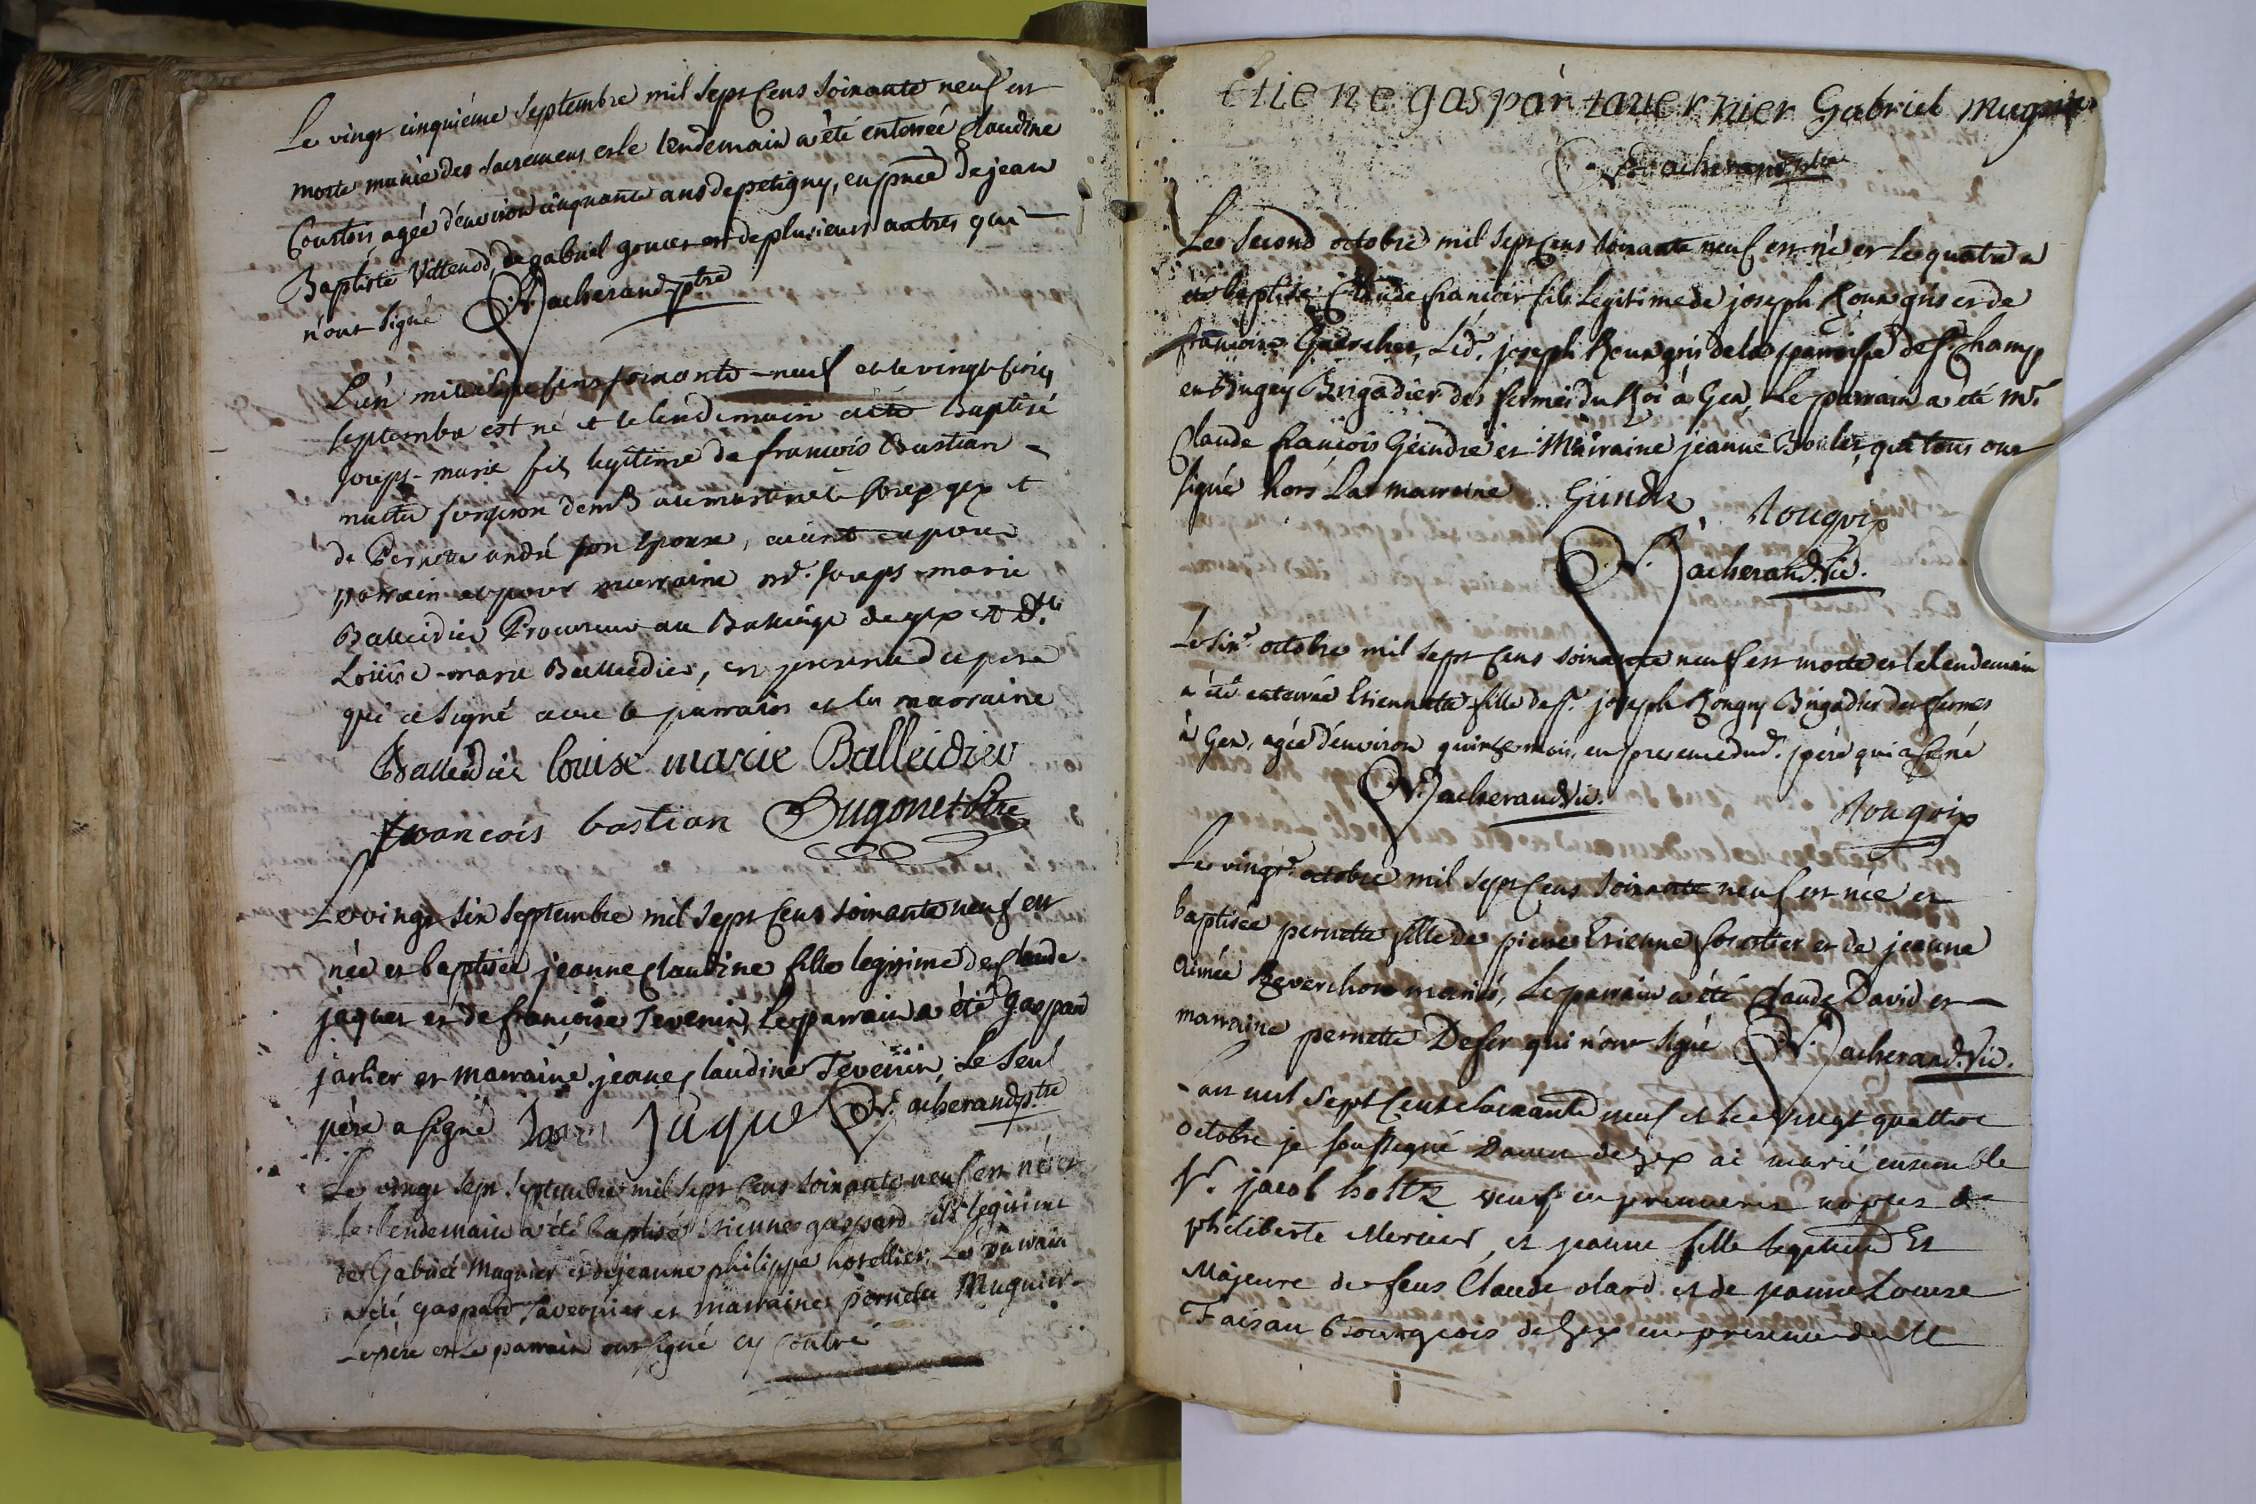 Le vingt cinquiéme Septembre mil Sept Cens Soixante neuf est
morte munie des sacremens et le lendemain a été enterrée Claudine
Courtois agée d'environ cinquante ans de petigny, en pnce de jean
Baptiste Vuttenod, de gabriel gouces et de plusieurs autres qui
n'ont Signé Vacherand ptre
L'an mil sept cens soixante-neuf et le vingt-cinq
septembre est né et le lendemain a été Baptisé
Joseph-marie fils legitime de francois Bastian
de Pernette andré son Epouse, aiant eu pour
parrain et pour marraine mr. Joseph-marie
Balleidier Procureur au Bailliage de gex et Dlle
Louise-marie Balleidier, en presence du pere
qui a Signé avec le parrain et la marraine
Balleidier louise marie Balleidier
francois bastian Dugonet Ptre
Le vingt six Septembre mil Sept Cens soixante neuf est
née et baptisée jeanne Claudine fille legitime de Claude
jaques et de francoise Tevenin, Le parrain a été Gaspard
jarlier et marraine jeanne Claudine Tevenin, Le Seul
père a signé Jaque Vacherand p.tre
Le vingt Sept Septembre mil Sept Cens Soixante neuf est né et
le lendemain a été baptisé Etienne gaspard fils legitime
de Gabriel Mugnier et de jeanne philippe hotellier, Le parrain
a été gaspard Tavernier et marraine pernette Mugnier
Le père et le parrain ont signé cy contre
étiene gaspar tavernier Gabriel Mugnier
Vacherand ptre
Le Second octobre mil Sept Cens Soixante neuf est né et le quatre a
été baptisé Claude francois fils Legitime de joseph Roux gris et de
francoise Guerchet, Led. joseph Roux gris de la parroisse de St. Champ
en Bugey Brigadier des fermes du Roi à Gex, Le parrain a été Mr.
Claude francois Geindre et Mairaine jeanne Boulier, qui tous ont
signé hors La marraine Geindre Rougrix
N. Vacherand. Vic.
Le Six.e octobre mil Sept Cens soixante neuf est morte et le lendemain
a été enterrée Etiennette fille de Sr. joseph Rougry Brigadier des fermes
à Gex, agée d'environ quinze mois, en presence dud. père qui a signé
N. Vacherand Vic. Rougrix
Le vingt.e octobre mil Sept Cens Soixante neuf est née et
baptisée pernette fille de pierre Etienne Forestier et de jeanne
Aimée Reverchon mariés, Le parrain a été Claude David et
marraine pernette Defer qui n'ont signé N. Vacherand. Vic.
L'an mil Sept Cent soixante neuf et le vingt quattre
octobre je soussigné Doien de gex ai marié ensemble
Sr. jacob holtz veuf en premieres nopces de
philiberte Mercier, et jeanne fille legitime Et
Majeure de feus Claude olard et de jeanne Louise
Faisan Bourgeois de Gex en presence de M